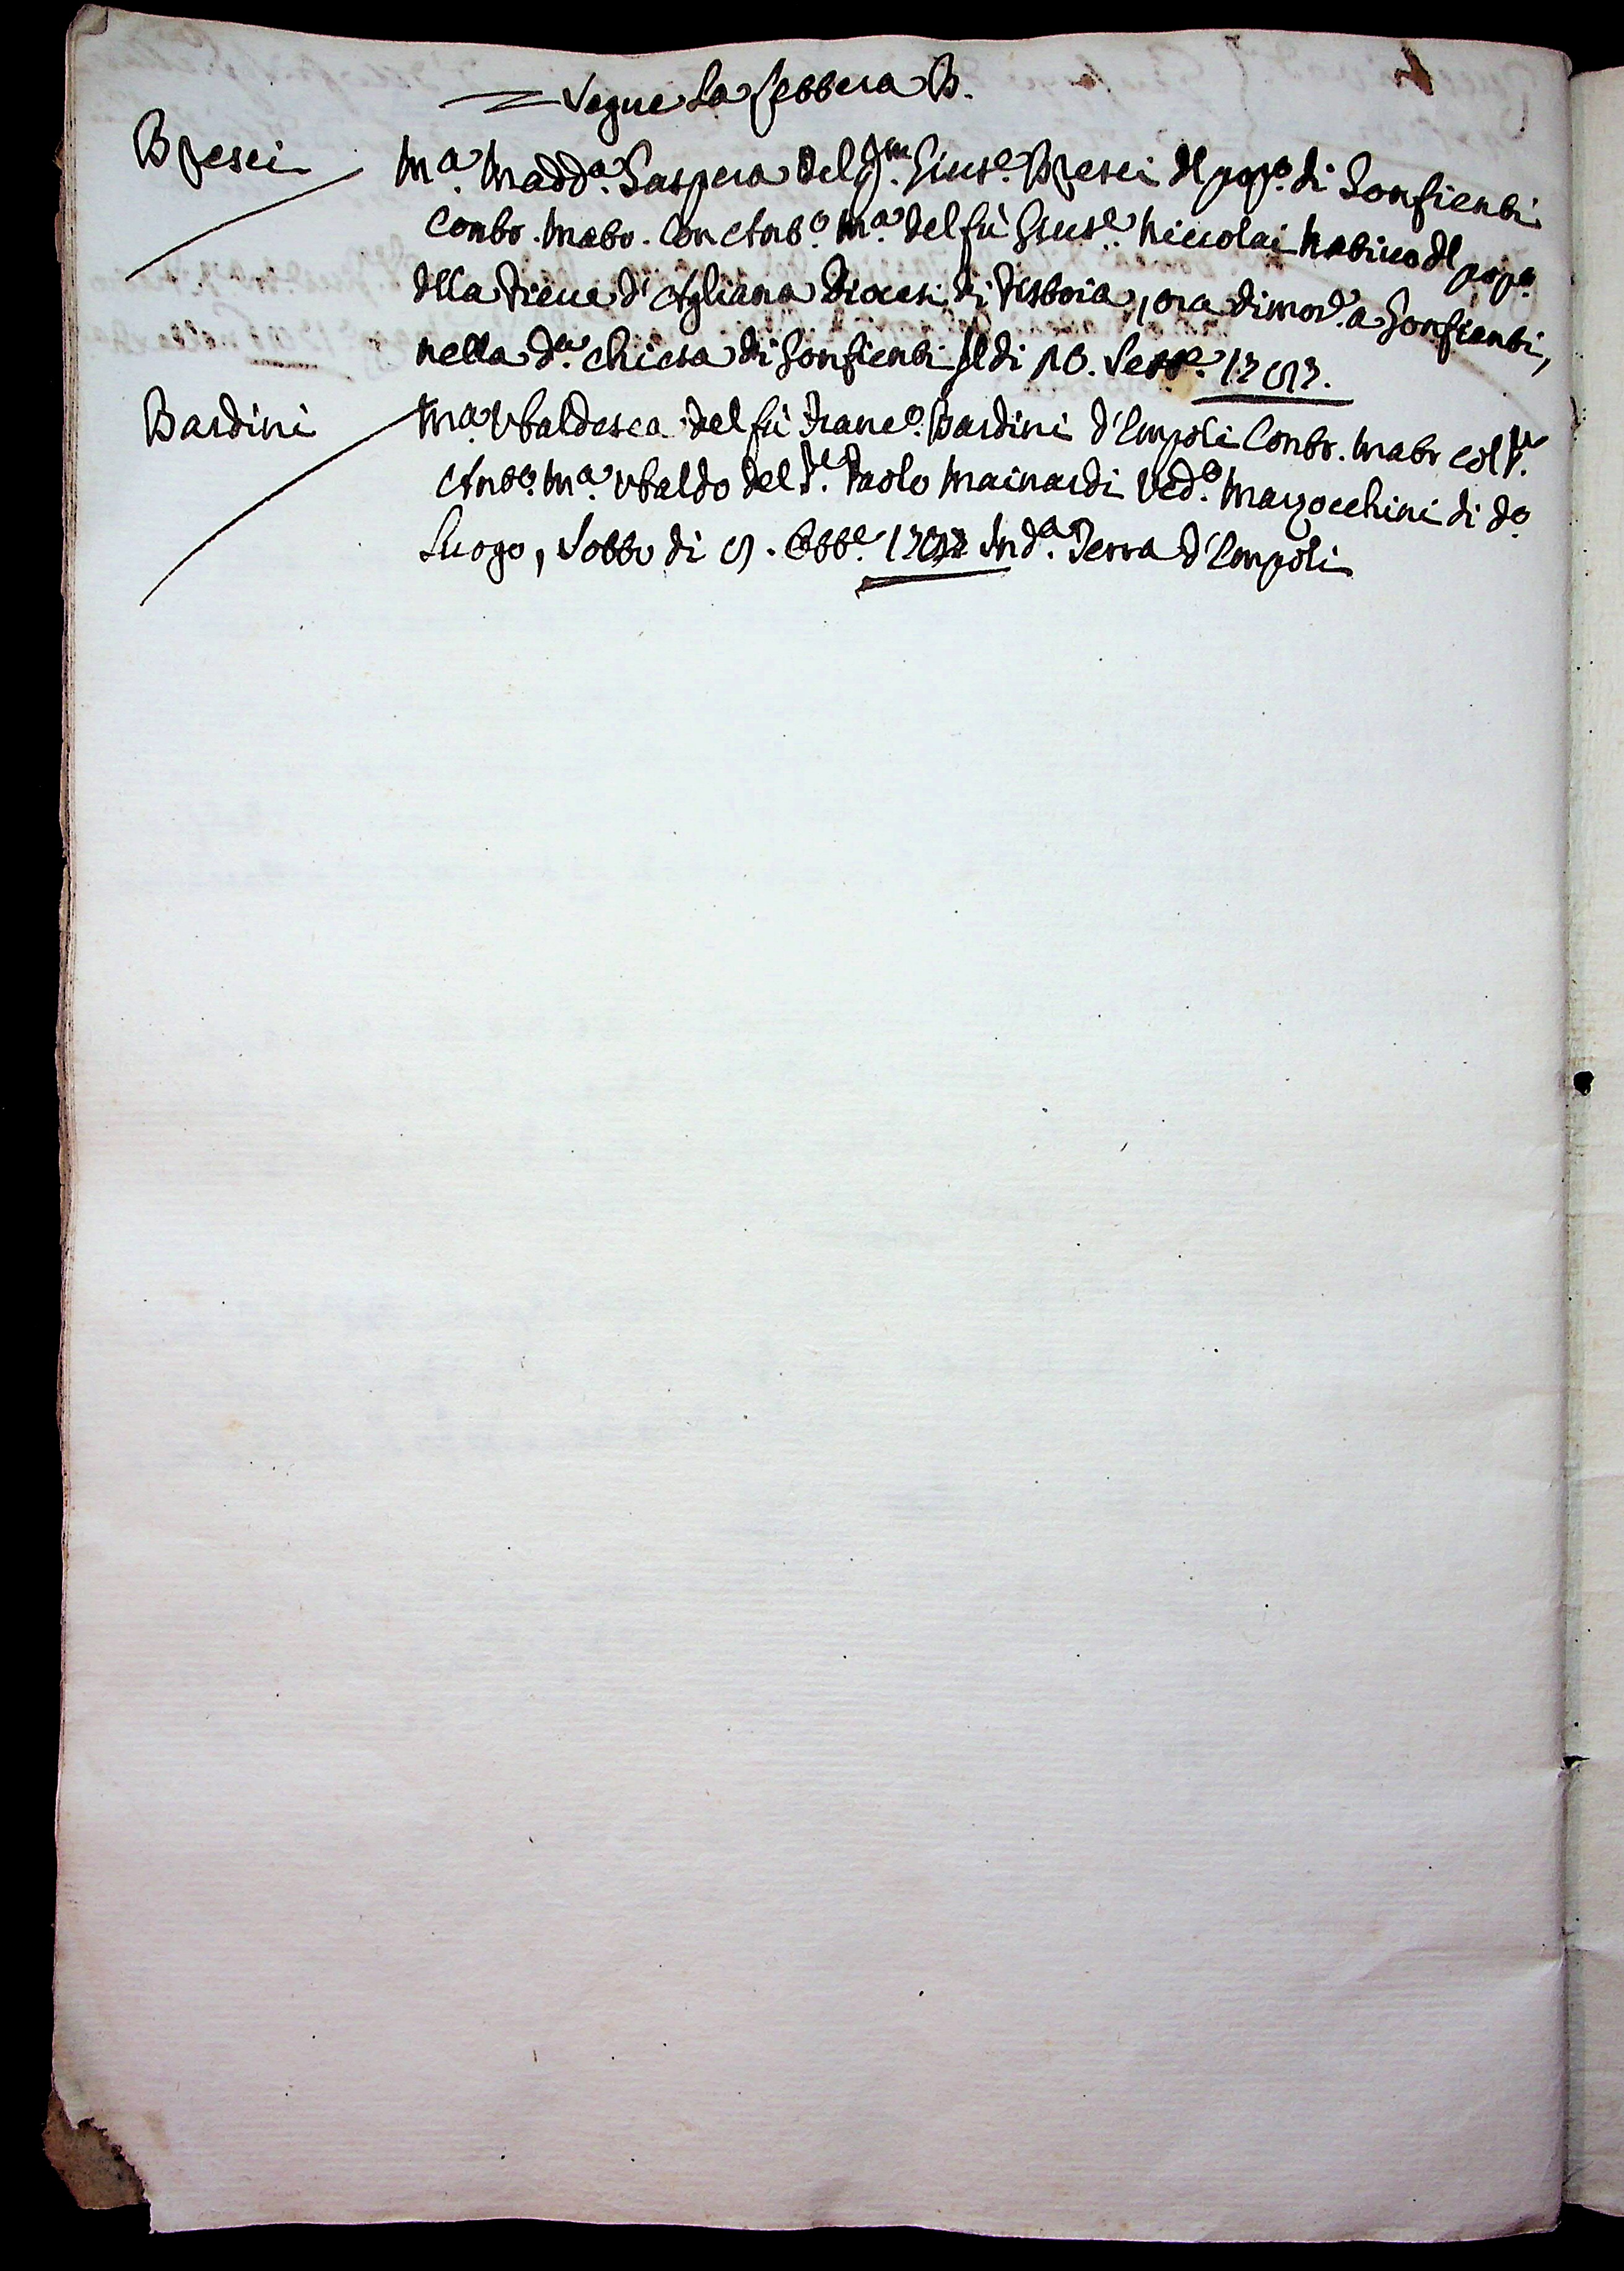 Segue La Lettera B.
Bresci
Ma. Madda. Gaspera del qm. Giuse. Bresci del popo. di Gonfienti
Contr. Matr. Con Anto. Ma. del fù Giuse. Niccolai Nativo del popo.
della Pieve d'Agliana Diocesi di Pistoia, ora dimorte. a Gonfienti,
nella da. chiesa di Gonfienti il di 10. Sette. 1797.
Bardini
Ma. Ubaldesca del fù Franco. Bardini d'Empoli Contr. Matr col Sr.
Anto. Ma. Ubaldo del Sr. Paolo Mainardi Marzocchini di do.
Luogo, Sotto di 9. Ottbe. In da. Terra d'Empoli